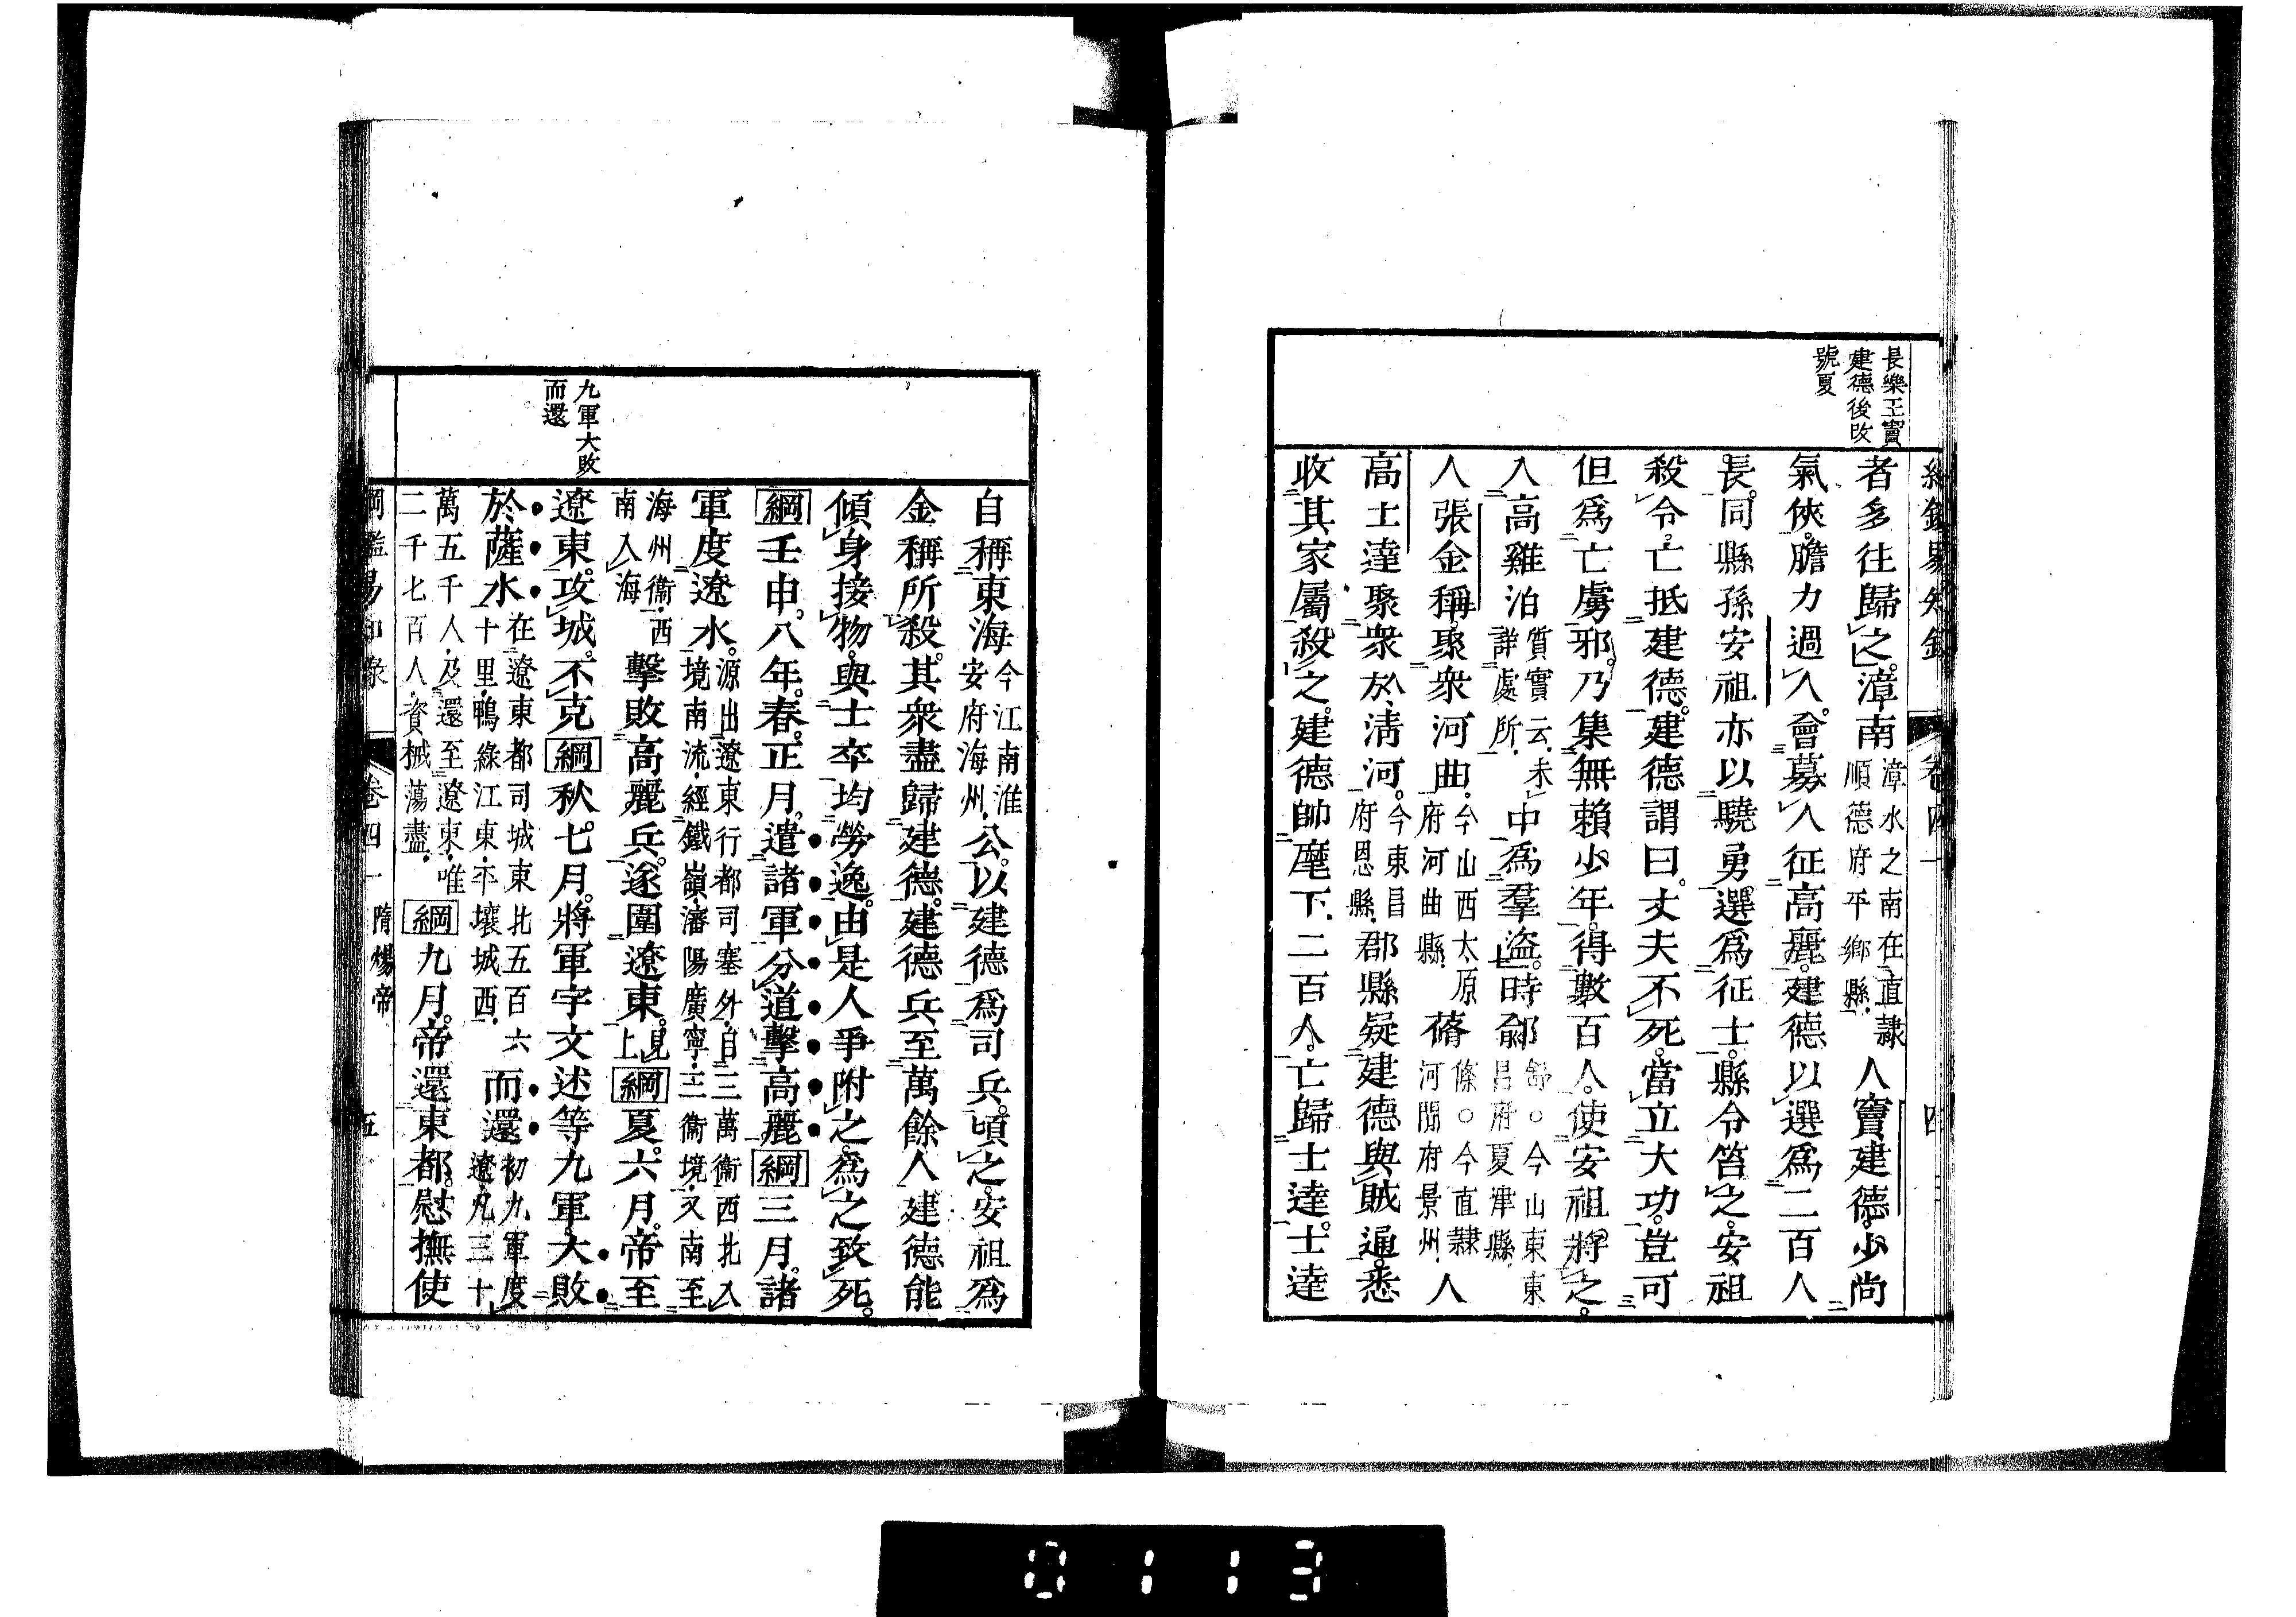 長樂王竇
建德後改
號夏
者多往歸之。漳南漳水之南在直隷順德府平鄉縣人竇建德。少尚
氣俠。膽力過人。會募人征高麗。建德以選爲二百人
長。同縣孫安祖亦以驍勇。選爲征士。縣令笞之。安祖
殺令。亡抵建德。建德謂曰。丈夫不死。當立大功。豈可
但爲亡虜邪。乃集無賴少年。得數百人。使安祖將之。
入高雞泊質實云未詳處所中爲羣盜。時鄃○今山東東昌府夏津縣
人張金稱。聚衆河曲。今山西太原府河曲縣蓨條○今直隷河間府景州人
高士達聚衆於淸河。今東昌府恩縣郡縣疑建德與賊通。悉
收其家屬殺之。建德帥麾下二百人。亡歸士達。士達
卷四
自稱東海今江南淮安府海州公。以建德爲司兵。頃之。安祖爲
金稱所殺。其衆盡歸建德。建德兵至萬餘人。建德能
傾身接物。與士卒均勞逸。由是人爭附之。爲之致死。
綱壬申。八年。春。正月。遣諸軍分道擊高麗綱三月。諸
軍度遼水。源出遼東行都司塞外自三萬衞西北入境南流經鐵嶺瀋陽廣寧三衞境又南至
海州衞西南入海擊敗高麗兵。遂圍遼東。見上綱夏。六月。帝至
遼東。攻城。不克綱秋。七月。將軍宇文述等九軍。大敗
於薩水在遼東都司城東北五百六十里鴨綠江東平壤城西而還初九軍度遼凡三十
萬五千人及還至遼東唯二千七百人資械蕩盡綱九月。帝還東都。慰撫使
九軍大敗
而還
綱鑑易知錄 卷四 隋煬帝 五
0113